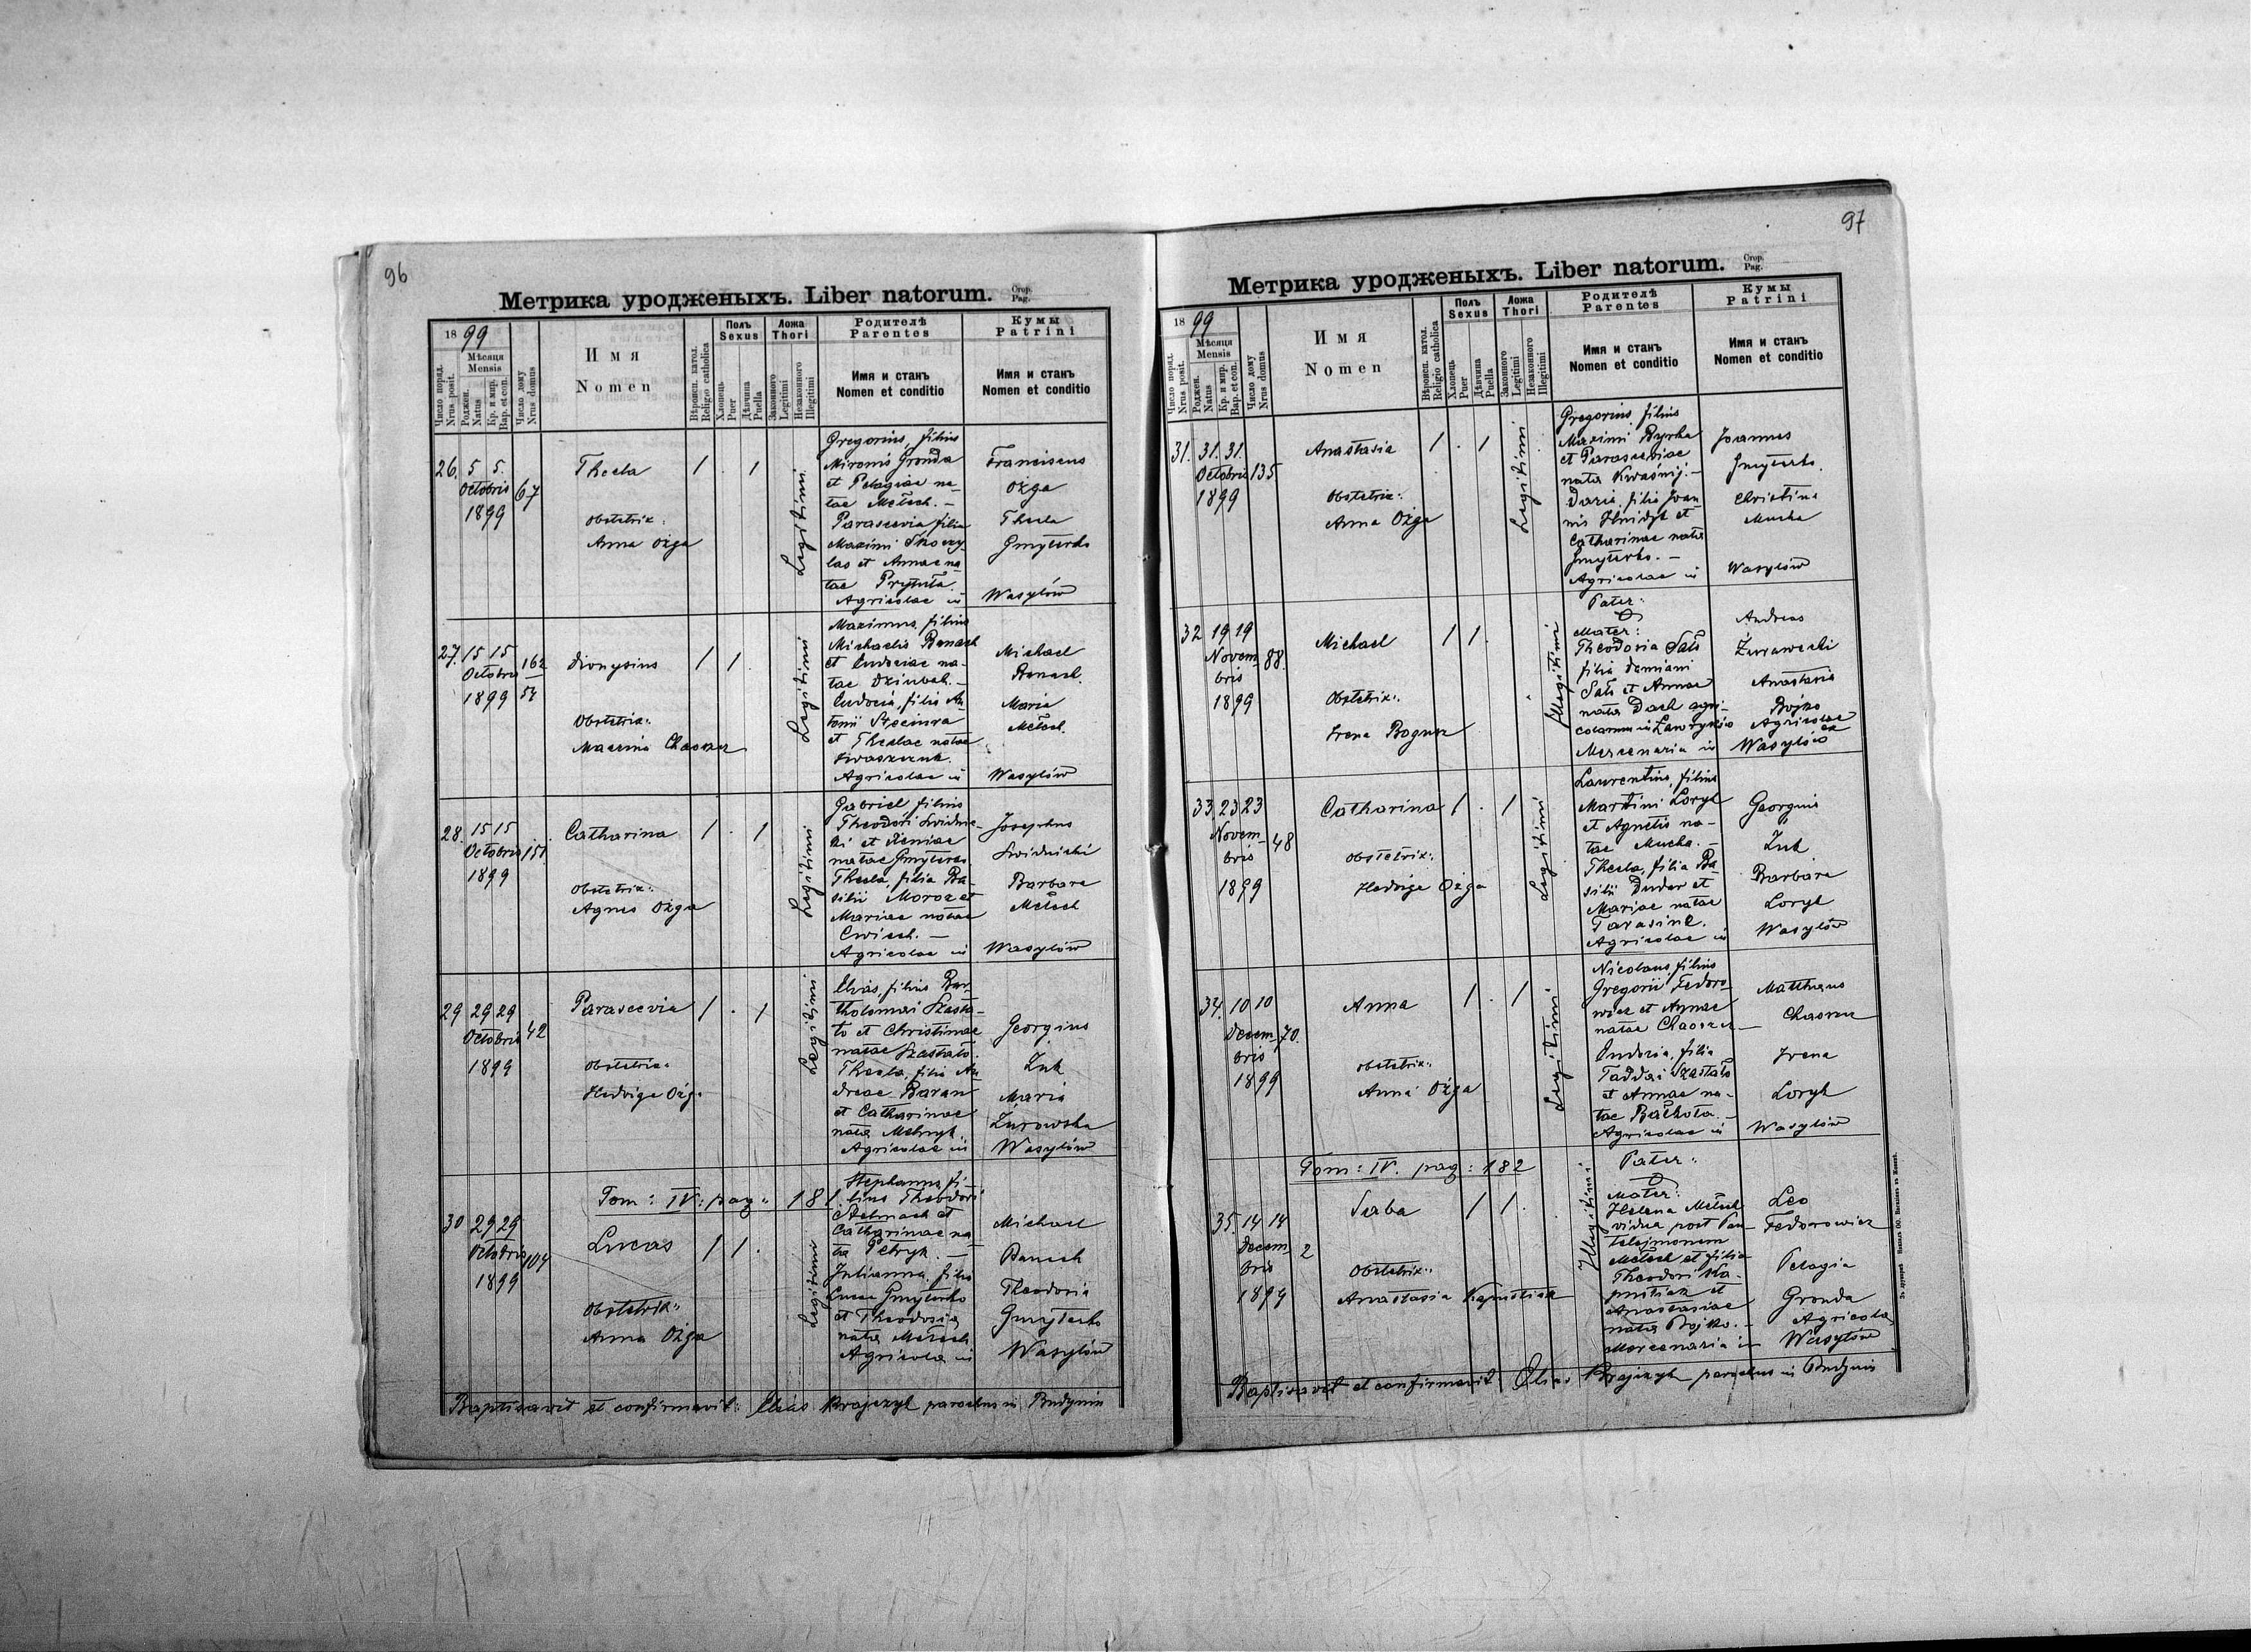 96
Метрика уродженыхъ. Liber natorum. Стор. Pag.
1899
Число поряд. Nrus posit.
Мѣсяця Mensis
Роджен. Natus
Кр. и мир. Bap. et con.
Число дому Nrus domus
Имя Nomen
Вѣроисп. катол. Religio catholica
Полъ Sexus
Хлопець Puer
Дѣвчина Puella
Ложа Thori
Законного Legitimi
Незаконного Illegitimi
Родителѣ Parentes
Имя и станъ Nomen et conditio
Кумы Patrini
Имя и станъ Nomen et conditio
26. 5 5. Octobris 1899 67
Thecla 1 . 1
Obstetrix:
Anna Ożga
Legitimi
Gregorius, filius
Mironis Gronda
et Pelagiae na-
tae Mełech. —
Parascevia filia
Maximi Skoczy-
las et Annae na-
tae Prytuła.
Agricolae in
Franciscus
Ożga
Thecla
Gmyterko
Wasylów
27. 15 15 Octobris 1899 162 54
Dionysius 1 1 .
Obstetrix:
Macrina Chaoszcz
Legitimi
Maximus, filius
Michaelis Banach
et Eudociae na-
tae Dziubek. —
Eudocia, filia An-
tonii
et Theclae natae
Iwaszczuk.
Agricolae in
Michael
Banach.
Maria
Mełech.
Wasylów
28. 15 15 Octobris 1899 151
Catharina 1 . 1
Obstetrix:
Agnes Ożga
Legitimi
Gabriel filius
Theodori Swidnic-
ki et Xeniae
natae Gmyterko
Thecla, filia Ba-
silii Moroz et
Mariae natae
Cwiech. —
Agricolae in
Josephus
Swidnicki
Barbara
Mełech
Wasylów
29 29 29 Octobris 1899 42
Parascevia 1 . 1
Obstetrix:
Hedvige Ożga
Legitimi
Elias, filius Bar-
tholomaei Szasta-
ło et Christinae
natae Szastało.
Thecla, filia An-
dreae Baran
et Catharinae
nata Melnyk.
Agricolae in
Georgius
Żuk
Maria
Żurowska
Wasylów
Tom: IV: pag: 181.
30 29 29 Octobris 1899 104
Lucas 1 1 .
Obstetrix:
Anna Ożga
Legitimi
Stephanus, fi-
lius Theodori
Stelmach et
Catharinae na-
ta Petryk. —
Julianna, filia
Lucae Gmyterko
et Theodosia
nata Mełech
Agricola in
Michael
Banach
Theodosia
Gmyterko
Wasylów
Baptisavit et confirmavit: Elias Krajczyk parochus in Budynin
97
Метрика уродженыхъ. Liber natorum. Стор. Pag.
1899
Число поряд. Nrus posit.
Мѣсяця Mensis
Роджен. Natus
Кр. и мир. Bap. et con.
Число дому Nrus domus
Имя Nomen
Вѣроисп. катол. Religio catholica
Полъ Sexus
Хлопець Puer
Дѣвчина Puella
Ложа Thori
Законного Legitimi
Незаконного Illegitimi
Родителѣ Parentes
Имя и станъ Nomen et conditio
Кумы Patrini
Имя и станъ Nomen et conditio
31. 31. 31. Octobris 1899 135
Anastasia 1 . 1
Obstetrix:
Anna Ożga
Legitimi
Gregorius, filius
Maximi Byrka
et Parasceviae
nata Kwaśnij. —
Daria, filia Joan-
nis Hnidyk et
Catharinae nata
Gmyterko. —
Agricolae in
Joannes
Gmyterko.
Christina
Mucha
Wasylów
32 19 19 Novembris 1899 88.
Michael 1 1 .
Obstetrix:
Irena Bogusz
Illegitimi
Pater:
Mater:
Theodosia Sało
filia Damiani
Sało et Annae
nata Dach agri-
colarum in Ławryków
Mercenaria in
Andreas
Żurawecki
Anastasia
Bojko
Agricolae
ex
Wasylów
33. 23 23 Novembris 1899 48
Catharina 1 . 1
Obstetrix:
Hedvige Ożga
Legitimi
Laurentius, filius
Martini Loryk
et Agnetis na-
tae Mucha. —
Thecla, filia Ba-
silii Dudar et
Mariae natae
Tarasink.
Agricolae in
Georgius
Żuk
Barbara
Loryk
Wasylów
34. 10 10 Decembris 1899 70.
Anna 1 . 1
Obstetrix:
Anna Ożga
Legitimi
Nicolaus, filius
Gregorii Fedoro-
wicz et Annae
natae Chaoszcz —
Eudocia, filia
Taddei Szastało
et Annae na-
tae Bałkota. —
Agricolae in
Matthaeus
Chaoszcz
Irena
Loryk
Wasylów
Tom: IV. pag: 182
35. 14 14 Decembris 1899 2
Saba 1 1 .
Obstetrix:
Anastasia Kapustiak
Illegitimi
Pater:
Mater:
Helena Mełech
vidua post Pan-
telejmonem
Mełech et filia
Theodori Ka-
pustiak et
Anastasiae
nata Bojko. —
Mercenaria in
Leo
Fedorowicz
Pelagia
Gronda
Agricola
Wasylów
Baptisavit et confirmavit: Elias Krajczyk parochus in Budynin